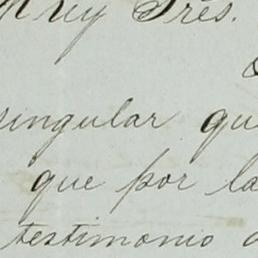 Muy Tres.
singular qu
que por la
testimonio